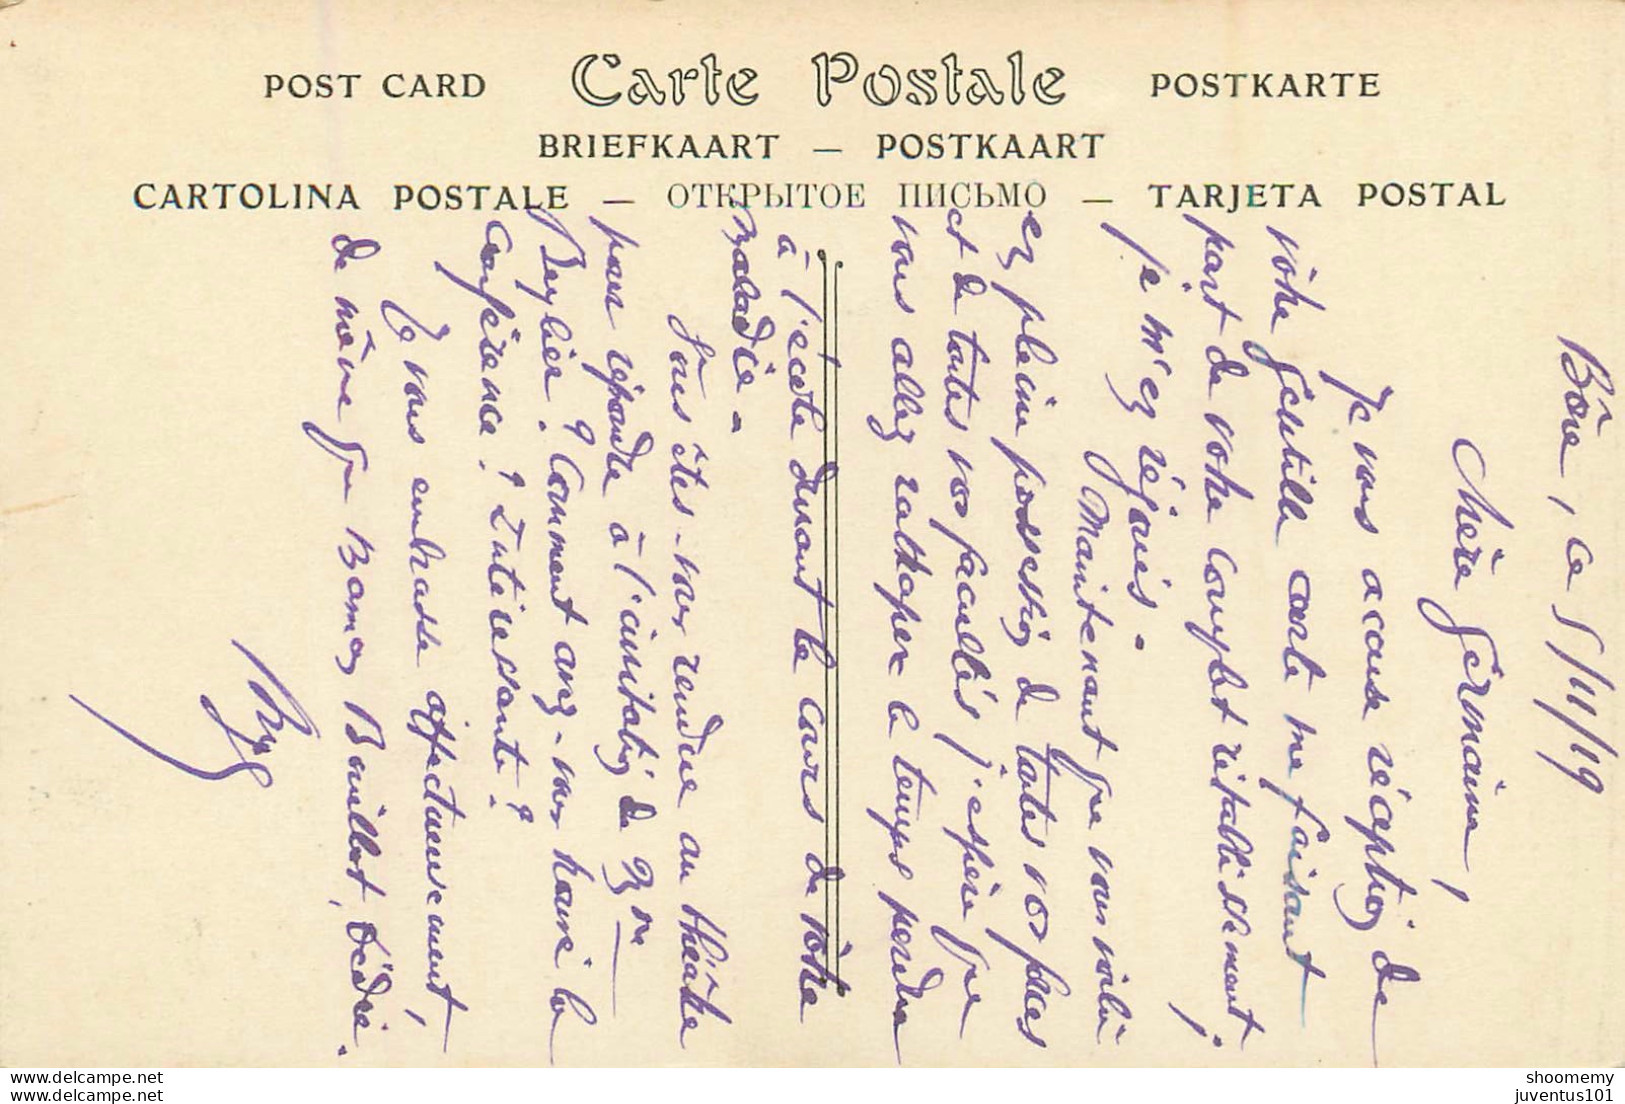 POST CARD Carte Postale POSTKARTE
BRIEFKAART — POSTKAART
CARTOLINA POSTALE — ОТКРЫТОЕ ПИСЬМО — TARJETA POSTAL
Bône, ce 5/11/19
Chère Germaine,
Je vous accuse réception de
votre gentille carte me faisant
part de votre complet rétablissement,
je m'en réjouis.
Maintenant que vous voilà
en pleine possession de toutes vos forces
et de toutes vos facultés j'espère que
vous allez rattraper le temps perdu
à l'école durant le cours de votre
maladie.
Vous êtes-vous rendue au théâtre
pour répondre à l'invitation de Mme
? Comment avez-vous trouvé la
Conférence ? Intéressante ?
Je vous embrasse affectueusement,
de même que Maman
www.delcampe.net
shoomemy
juventus101